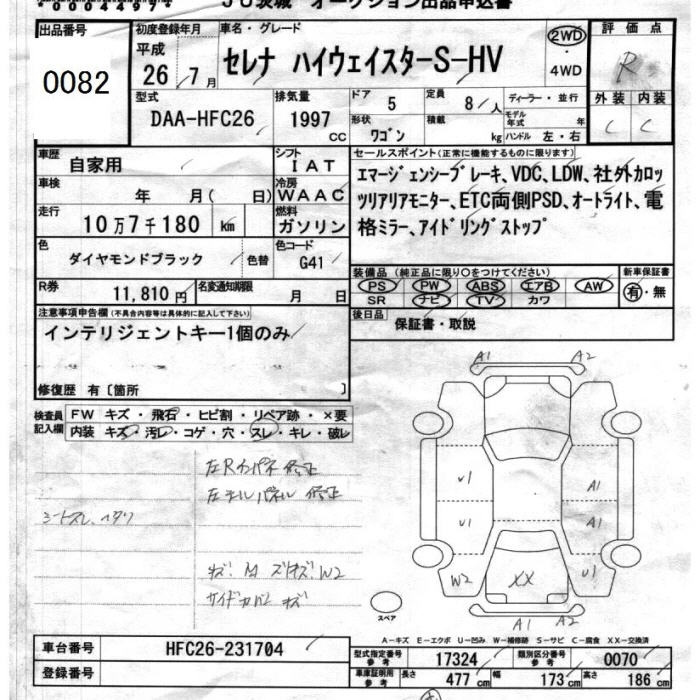 00044997
JU茨城 オークション出品申込書
出品番号
0082
初度登録年月
平成
26年7月
車名・グレード
セレナ ハイウェイスターS-HV
2WD
・
4WD
評価点
R
外装 内装
C C
型式
DAA-HFC26
排気量
1997 cc
ドア
5
定員
8人
ディーラー・並行
形状
ワゴン
積載
kg
モデル年式 年
ハンドル 左・右
車歴
自家用
シフト
IAT
車検
年 月( 日)
冷房
WAAC
走行
10万7千180 km
燃料
ガソリン
色
ダイヤモンドブラック
色替
色コード
G41
R券
11,810円
名変通知期限
月 日
セールスポイント(正常に機能するものに限ります)
エマージェンシーブレーキ、VDC、LDW、社外カロッ
ツリアリアモニター、ETC両側PSD、オートライト、電
格ミラー、アイドリングストップ
装備品(純正品に限り○をつけてください)
PS PW ABS エアB AW
SR ナビ TV カワ
新車保証書
有・無
後日品
保証書・取説
注意事項申告欄(不具合内容等は具体的に記入して下さい)
インテリジェントキー1個のみ
修復歴 有〔箇所 〕
検査員記入欄
FW キズ・飛石・ヒビ割・リペア跡・×要
内装 キズ・汚レ・コゲ・穴・スレ・キレ・破レ
左Rカバネ 修正
左テールパネル 修正
シートスレ、ヘタリ
サイドカバー キズ
A1 A2
U1 A1
U1 A1
W2 XX U1
A1 A2
スペア
A-キズ E-エクボ U-凹み W-補修跡 S-サビ C-腐食 XX-交換済
車台番号
HFC26-231704
登録番号
型式指定番号 参考
17324
類別区分番号 参考
0070
車庫証明用 参考
長さ 477 cm
幅 173 cm
高さ 186 cm